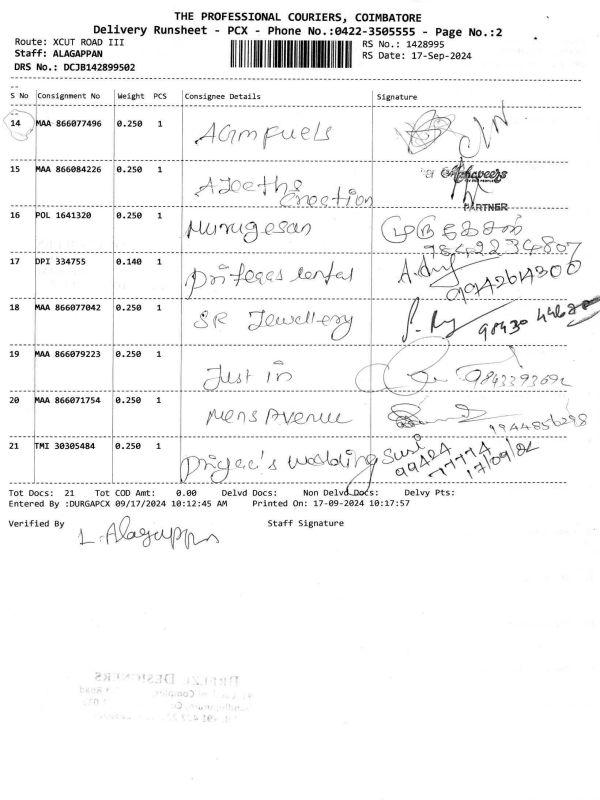 THE PROFESSIONAL COURIERS, COIMBATORE
Delivery Runsheet - PCX - Phone No.:0422-3505555 - Page No.:2
Route: XCUT ROAD III RS No.: 1428995
Staff: ALAGAPPAN RS Date: 17-Sep-2024
DRS No.: DCJB142899502
S No Consignment No Weight PCS Consignee Details Signature
14 MAA 866077496 0.250 1 AGM fuels
15 MAA 866084226 0.250 1 AJeeths
PARTNER
16 POL 1641320 0.250 1 Murugesan முருகேசன்
9842234807
17 DPI 334755 0.140 1
9942614300
18 MAA 866077042 0.250 1 SR Jewellery 98430 44620
19 MAA 866079223 0.250 1 Just in
20 MAA 866071754 0.250 1 Mens Avenue
1944856298
21 TMI 30305484 0.250 1 Susi
99424
77774
17/09/24
Tot Docs: 21 Tot COD Amt: 0.00 Delvd Docs: Non Delvd Docs: Delvy Pts:
Entered By :DURGAPCX 09/17/2024 10:12:45 AM Printed On: 17-09-2024 10:17:57
Verified By Staff Signature
L. Alagappan
BREEZE DESIGNERS